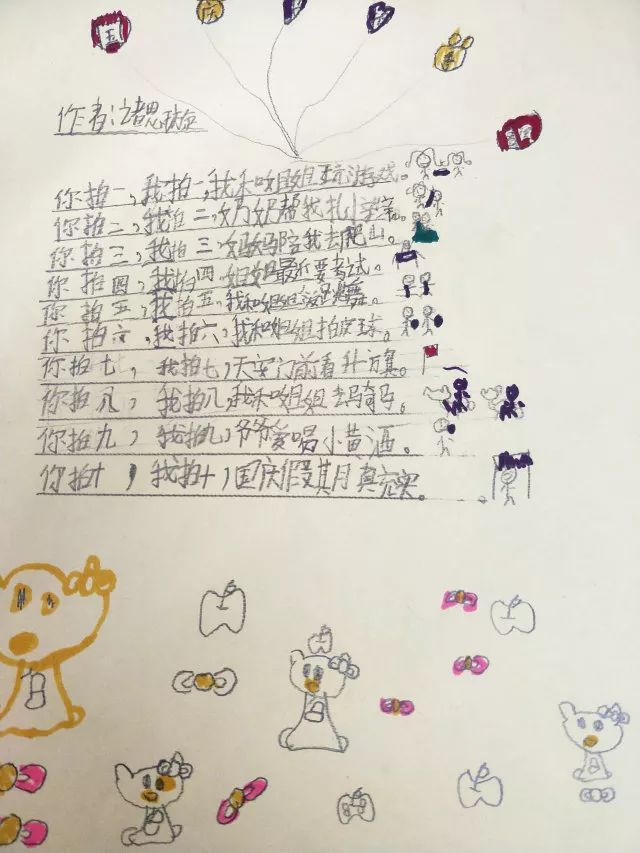 作者:
你拍一,我拍一,我和姐姐玩游戏。
你拍二,我拍二,奶奶帮我扎小辫。
你拍三,我拍三,妈妈陪我去爬山。
你拍四,我拍四,姐姐最近要考试。
你拍五,我拍五,我和姐姐跳舞。
你拍六,我拍六,我和姐姐拍皮球。
你拍七,我拍七,天安门前看升
你拍八,我拍八,我和姐姐去骑马。
你拍九,我拍九,爷爷爱喝小黄酒。
你拍十,我拍十,国庆假期真充实。